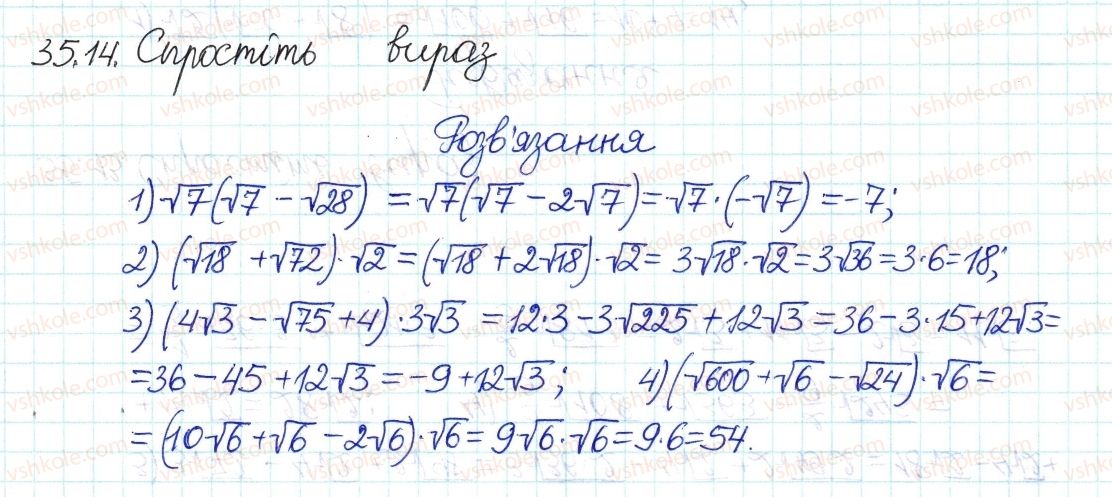 35.14. Спростіть вираз
Розв'язання
1) √7(√7 - √28) = √7(√7 - 2√7) = √7·(-√7) = -7;
2) (√18 + √72)·√2 = (√18 + 2√18)·√2 = 3√18·√2 = 3√36 = 3·6 = 18;
3) (4√3 - √75 + 4)·3√3 = 12·3 - 3√225 + 12√3 = 36 - 3·15 + 12√3 =
= 36 - 45 + 12√3 = -9 + 12√3; 4) (√600 + √6 - √24)·√6 =
= (10√6 + √6 - 2√6)·√6 = 9√6·√6 = 9·6 = 54.
vshkole.com